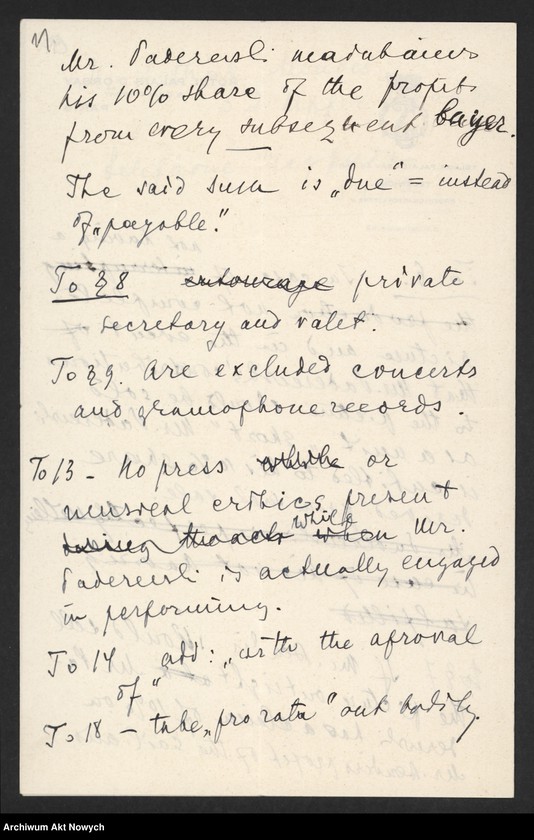 Mr. Paderewski maintains
his 10% share of the profits
from every subsequent buyer.
The said sum is „due" = instead
of „payable".
To § 8 entourage private
secretary and valet.
To § 9. Are excluded concerts
and gramophone records.
To 13 - No press or
musical critics present
while when Mr.
Paderewski is actually engaged
in performing.
To 14 add: „with the aproval
of"
To 18 - take „pro rata" out bodily.
Archiwum Akt Nowych